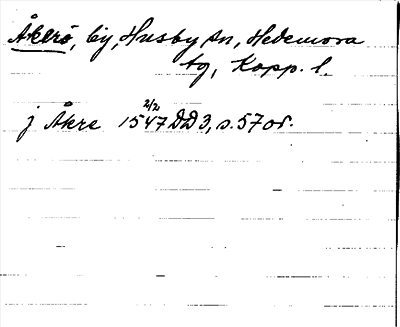 Åkerö, by, Husby sn, Hedemora
tg, Kopp. l.
2/2
j Åkre 1547 DD 3, s. 57 or.